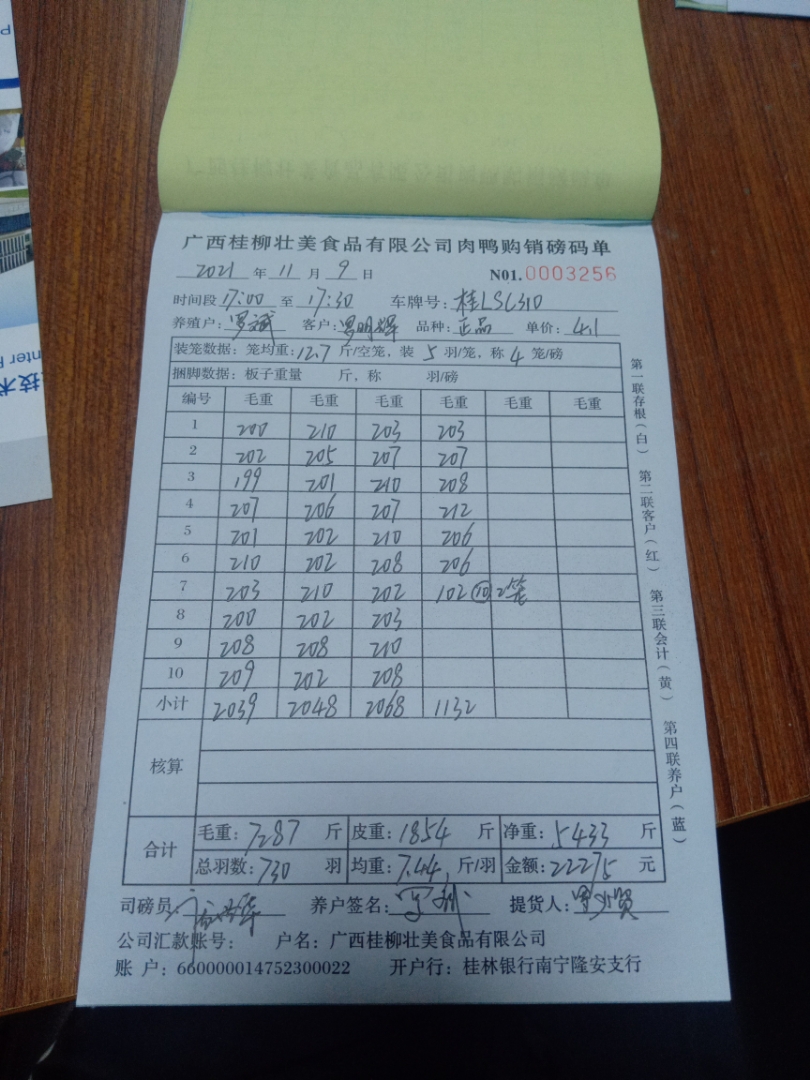 广西桂柳壮美食品有限公司肉鸭购销磅码单
2021 年 11 月 9 日 N01.0003256
时间段 17:00 至 17:30 车牌号: 桂LSC310
养殖户: 罗斌 客户: 罗明辉 品种: 正品 单价: 4.1
装笼数据: 笼均重: 12.7 斤/空笼, 装 5 羽/笼, 称 4 笼/磅
捆脚数据: 板子重量 斤, 称 羽/磅
编号 毛重 毛重 毛重 毛重 毛重 毛重
1 200 210 203 203
2 202 205 207 207
3 199 201 210 208
4 207 206 207 212
5 201 202 210 206
6 210 202 208 206
7 203 210 202 102 ⑩ 2笼
8 200 202 203
9 208 208 210
10 209 202 208
小计 2039 2048 2068 1132
核算
合计
毛重: 7287 斤 皮重: 1854 斤 净重: 5433 斤
总羽数: 730 羽 均重: 7.44 斤/羽 金额: 22275 元
司磅员: 养户签名: 提货人:
公司汇款账号: 户名: 广西桂柳壮美食品有限公司
账户: 660000014752300022 开户行: 桂林银行南宁隆安支行
第一联存根(白)
第二联客户(红)
第三联会计(黄)
第四联养户(蓝)
技术
nter
P